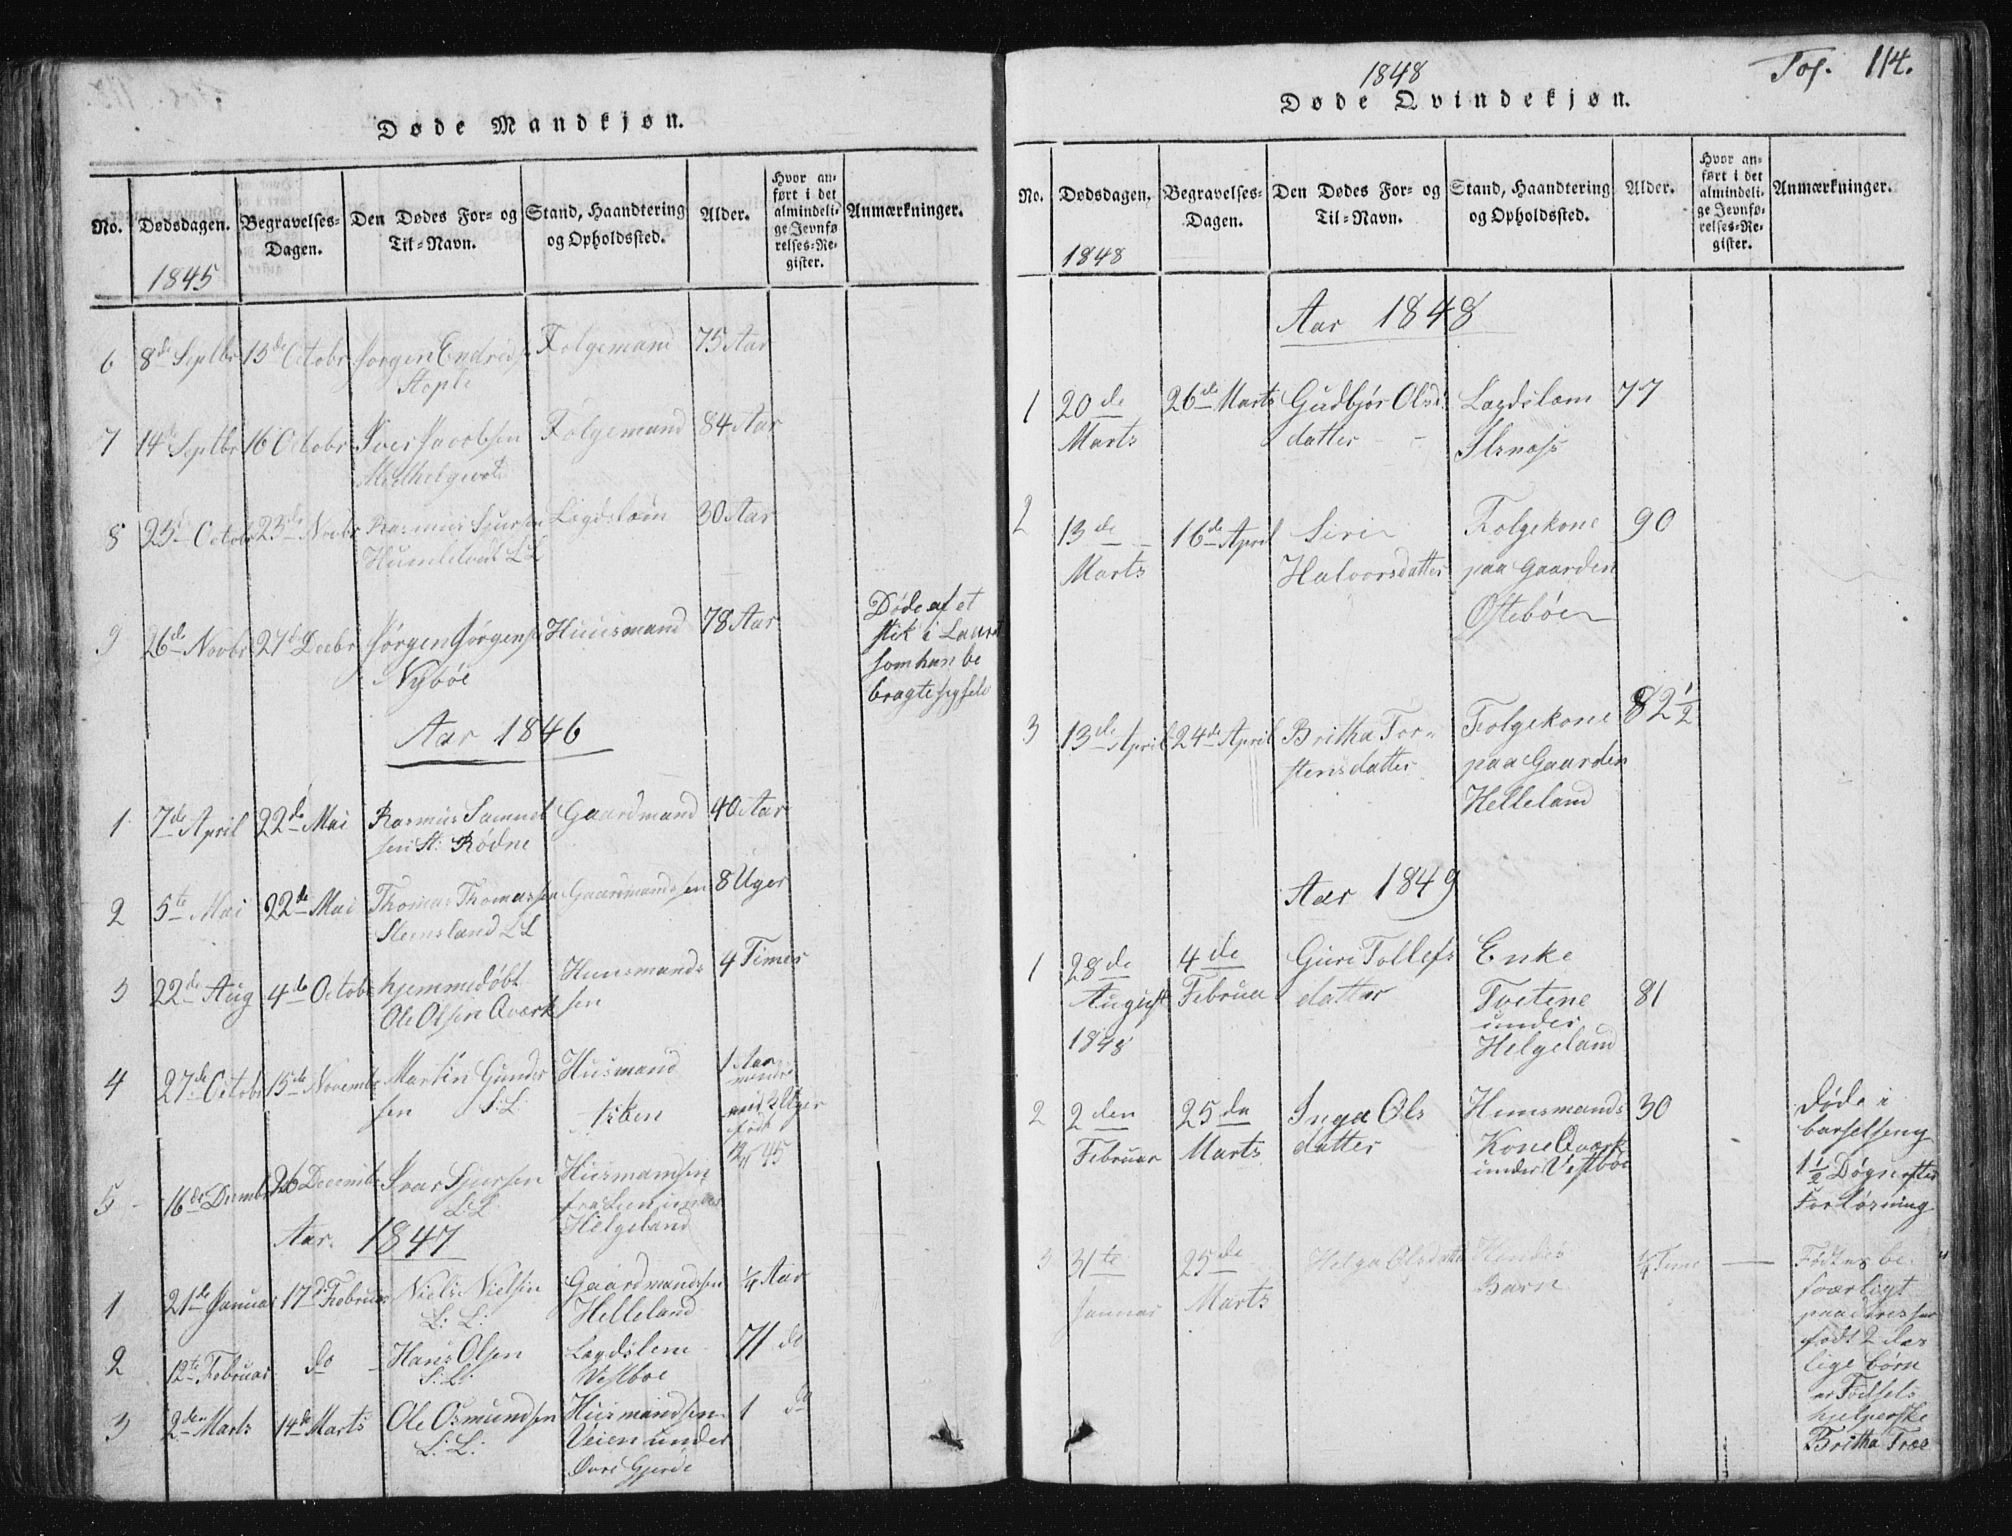 Døde Mandkjøn.
No. Dødsdagen. Begravelses-Dagen. Den Dødes For- og Til-Navn. Stand, Haandtering og Opholdssted. Alder. Hvor anført i det almindelige Jevnførelses-Register. Anmærkninger.
1845
6 8de Septbr 13de Octobr Jørgen Endreds Folgemand 75 Aar
Stople
7 14de Septbr 16 Octobr Iver Jacobsen Folgemand 84 Aar
8 25de Octobr 23de Novbr Rasmus Sjursen Lægdslem 30 Aar
Humletvedt LL
9 26de Novbr 27de Decbr Jørgen Jørgens Huusmand 78 Aar Døde af et
Nybøe stik i Laaret
som han be
bragte sig selv
Aar 1846
1 7de April 22de Mai Rasmus Samuel Gaardmand 40 Aar
sen St. Rødne
2 5te Mai 22de Mai Thomas Thomassen Gaardmandssen 8 Uger
Stemsland LL
3 22de Aug 4de Octobr hjemmedøbt Huusmands 4 Timer
Ole Olsen Qværk sen
4 27de Octobr 15de Novembr Martin Gunder Husmand 1 Aar
sen S:L: Isken
45
5 16de Decembr 26 December Ivar Sjursen Husmandsen
L:L: fra under
Helgeland
Aar 1847
1 21de Januar 17de Februar Niels Nielsen Gaardmandssen 1/4 Aar
L: L: Helleland
2 12te Februar do Hans Olsen Lægdslem 71 do
S:L: Vestbøe
3 2den Marts 14de Marts Ole Osmundsen Husmandsen 1 do
L: L: Veien under
Øvre Gjerde
Fol. 114.
1848
Døde Qvindekjøn.
No. Dødsdagen. Begravelses-Dagen. Den Dødes For- og Til-Navn. Stand, Haandtering og Opholdssted. Alder. Hvor anført i det almindelige Jevnførelses-Register. Anmærkninger.
1848
Aar 1848
1 20de 26de Marts Gudbjør Olss Lægdslem 77
Marts datter
2 13de 16de April Siri Folgekone 90
Marts Halvorsdatter paa Gaarden
Østebøe
3 13de April 24de April Britha Tor- Folgekone 82 1/2
stensdatter paa Gaarden
Helleland
Aar 1849
1 28de 4de Guri Tollefs Enke
August Februar datter Tvetene 81
1848 under
Helgeland
2 2den 25de Inga Ols Huusmands 30 døde i
Februar Marts datter Kone Qværk barselseng
under Vestbøe 1 1/2 Døgn efter
Forløsning
3 31te 25de Helga Olsdatter 1/4 Time Fødtes be-
Januar Marts Barn sværligt
født 2 døs
lige børn
hjelperske
Britha Træ